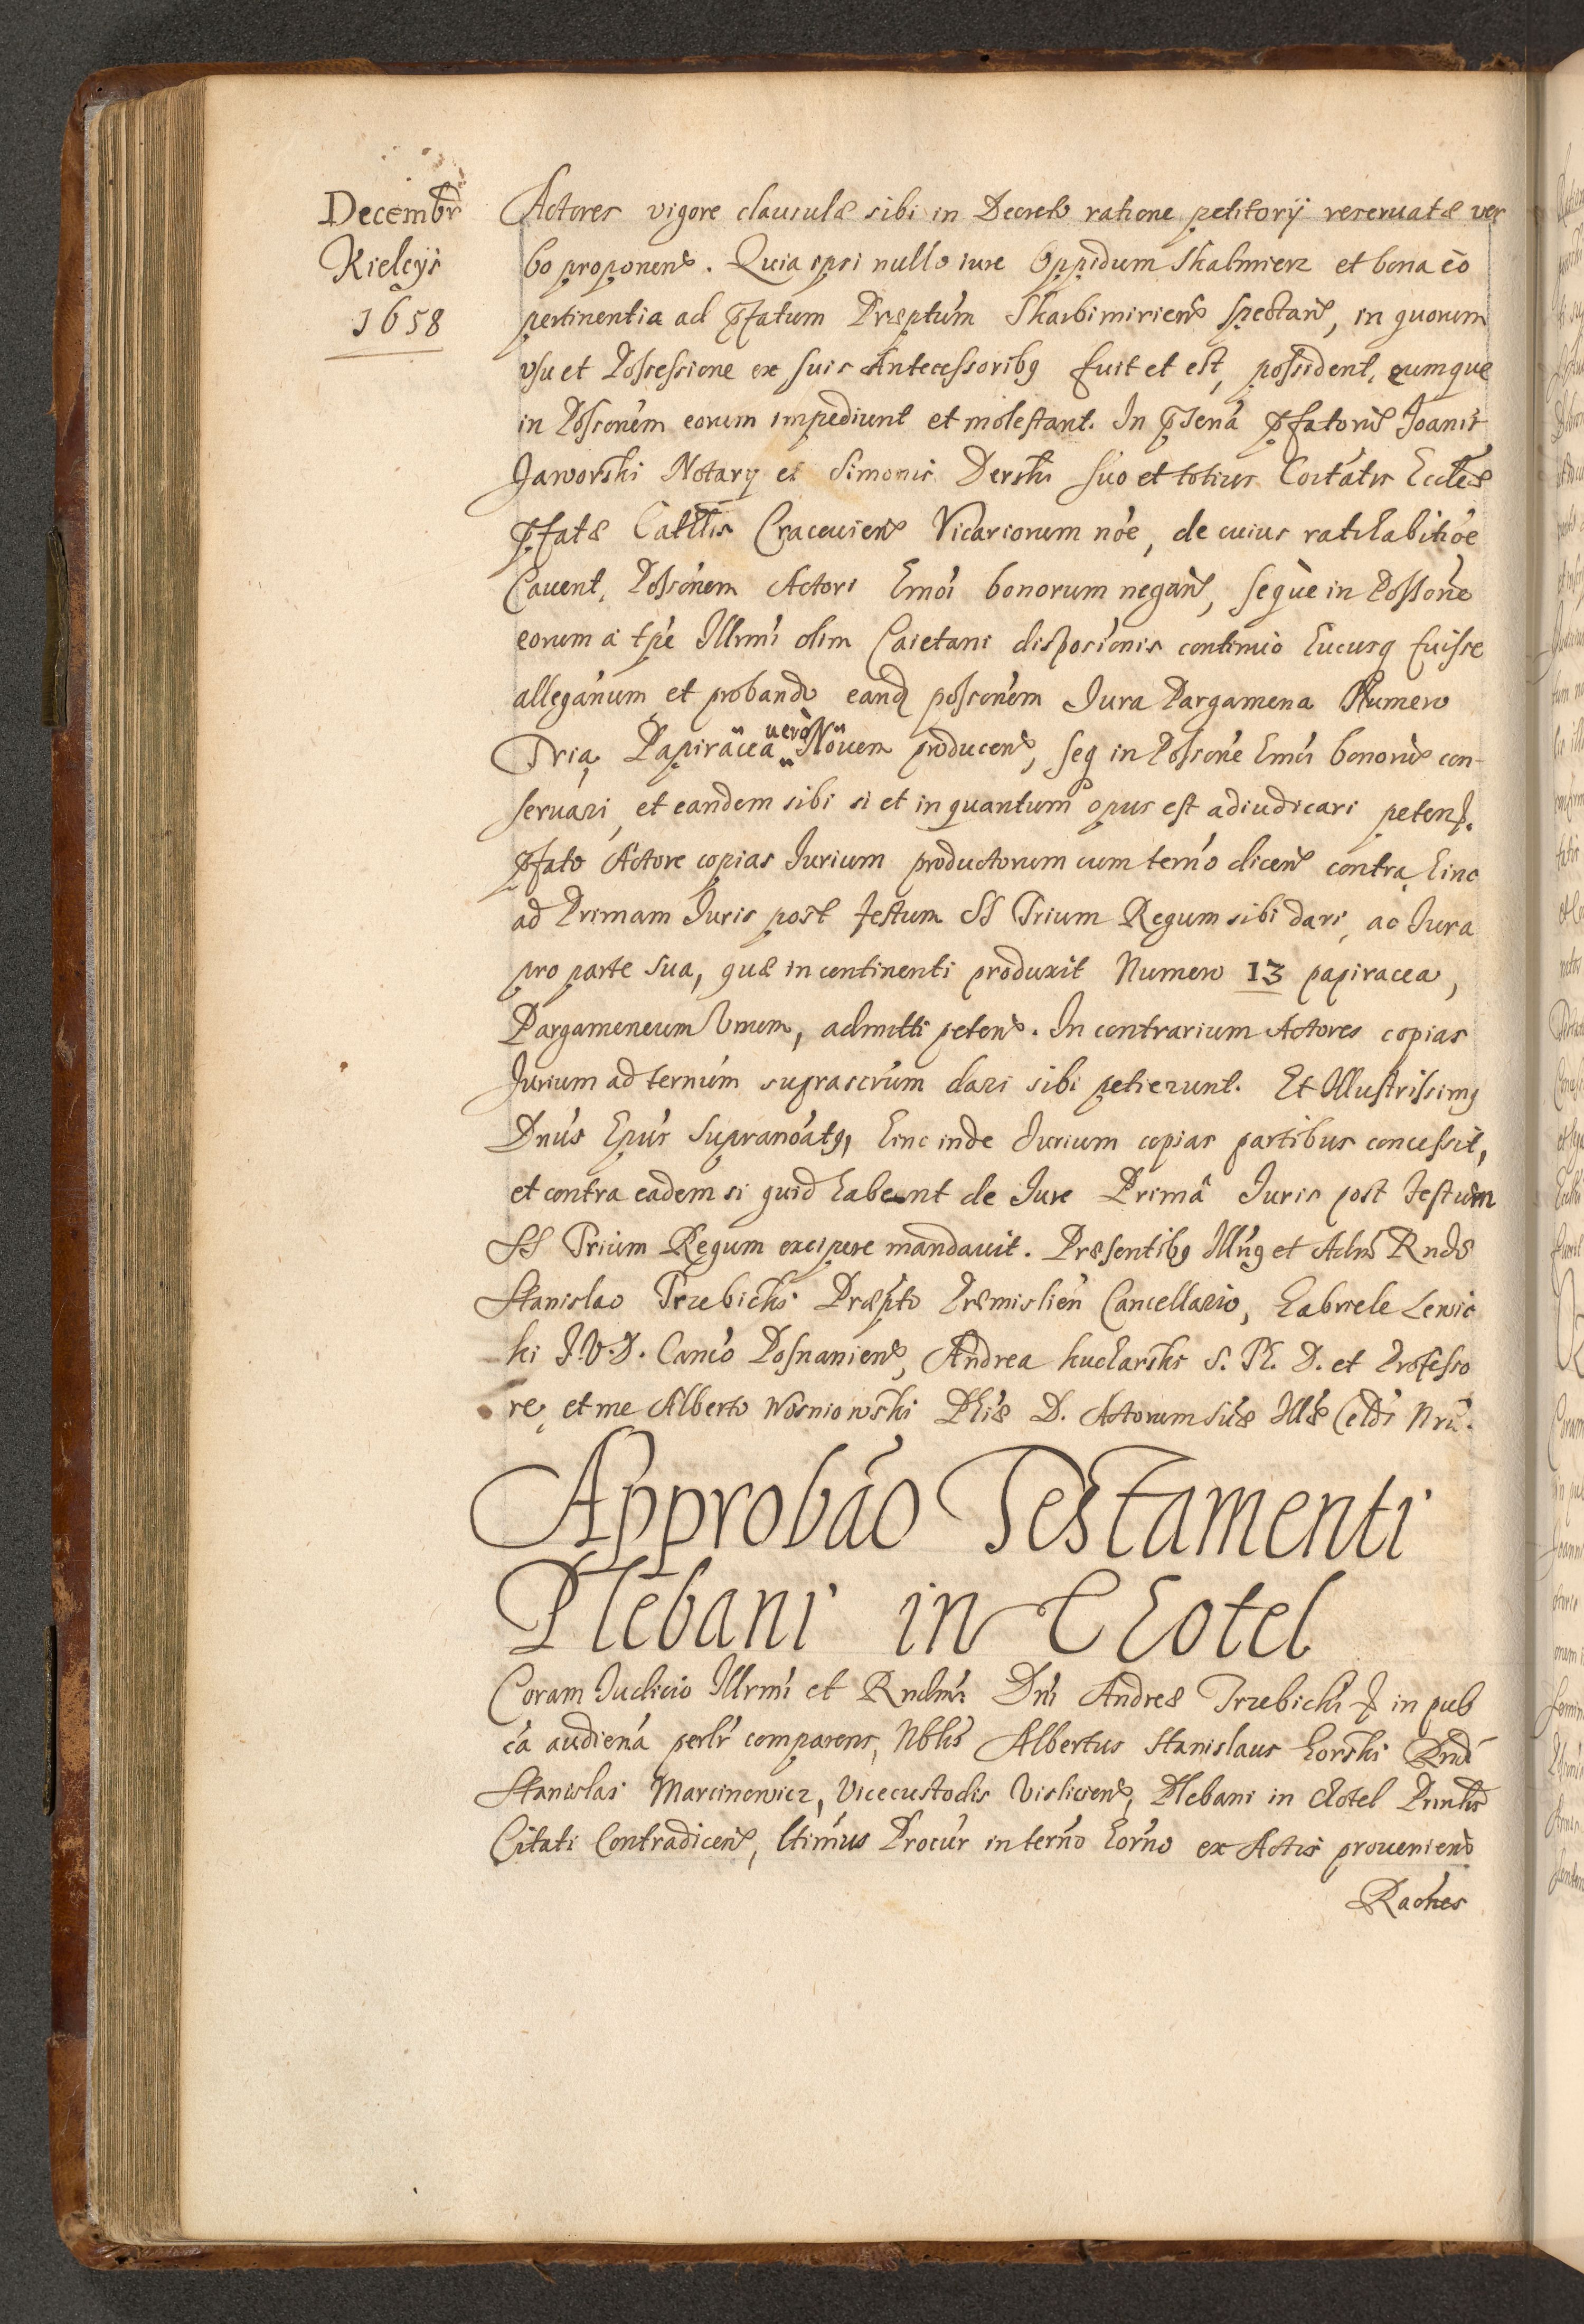 Decembr
Kielcys
1658
Actores vigore clausulæ sibi in Decreto ratione petitorij reseruatæ ver
bo proponens. Quia ipsi nullo iure Oppidum Skalmierz et bona eo
pertinentia ad pfatum Præptum Skarbimiriens spectans, in quorum
vsu et Possessione ex suis Antecessoribq fuit et est, possident, eumque
in Possonem eorum impediunt et molestant. In psena pfatorus Joanis
Jaworski Notarij et Simonis Derski suo et totius Coitatis Eccles
pfatæ Cathlis Cracouiens Vicariorum noe, de cuius ratihabitioe
Cauent, Possonem Actori hmoi bonorum negans, seque in Possone
eorum a tpe Illrmi olim Caietani disposionis continuo hucusq fuisse
alleganum et probando eand possonem Jura Pargamena Numero
Tria, Papiracea vero Nouem producens, seq in Possione hmoi bonorus con-
seruari, et eandem sibi si et in quantum opus est adiudicari petens.
pfato Actore copias Jurium productorum cum termo dicens contra hinc
ad Primam Juris post festum SS Trium Regum sibi dari, ac Jura
pro parte sua, quæ in continenti produxit Numero 13 papiracea,
Pargameneum Vnum, admitti petens. In contrarium Actores copias
Jurium ad ternum suprascrum dari sibi petierunt. Et Illustrissimq
Dnus Epus Supranoatq, hinc inde Jurium copias partibus concessit,
et contra eadem si quid habeant de Jure Prima Juris post Festum
SS Trium Regum excipere mandauit. Præsentibq Illnq et Adm Rndis
Stanislao Trzebicki Præpto Præmislien Cancellario, Gabriele Lewic
ki J.V.D. Canco Posnaniens, Andrea kucharski S. Th. D. et Professo
re, et me Alberto Wosniowski Phiæ D. Actorum Suæ Illæ Celdi Nri.
Approbao Testamenti
Plebani in Chotel
Coram Judicio Illrmi et Rndmi Dni Andreæ Trzebicki p in pub
ca audiena perlr comparens, Nblis Albertus Stanislaus Gorski Rndi
Stanislai Marcinowicz, Vicecustodis Visliciens, Plebani in Chotel Prntis
Citati Contradicens, ltimus Procur in terno horno ex Actis proueniens
Raones